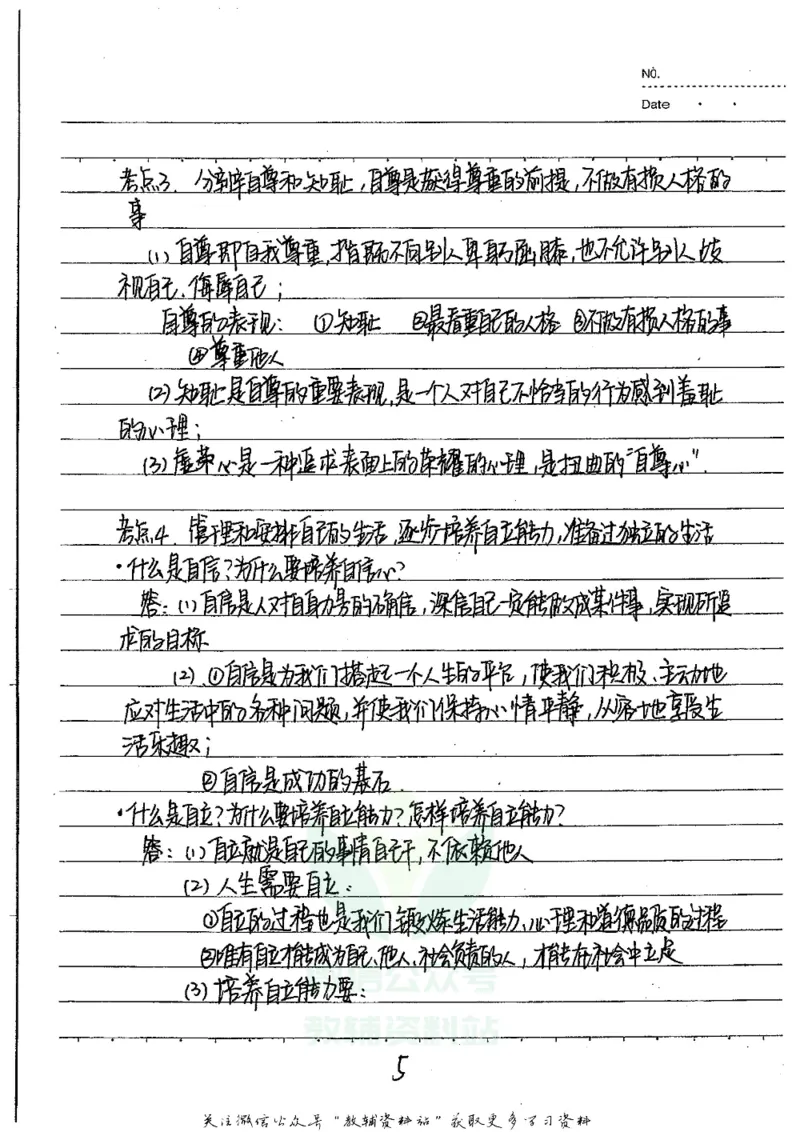 NO.
Date
考点3. 分辨自尊和知耻,自尊是获得尊重的前提,不做有损人格的
事
(1)自尊即自我尊重,指既不向别人卑躬屈膝,也不允许别人歧
视自己、侮辱自己;
自尊的表现: ①知耻 ②最看重自己的人格 ③不做有损人格的事
④尊重他人
(2)知耻是自尊的重要表现,是一个人对自己不恰当的行为感到羞耻
的心理;
(3)虚荣心是一种追求表面上的荣耀的心理,是扭曲的“自尊心”.
考点4. 管理和安排自己的生活,逐步培养自立能力,准备过独立的生活
·什么是自信?为什么要培养自信心?
答:(1)自信是人对自身力量的确信,深信自己一定能做成某件事,实现所追
求的目标
(2).①自信是为我们搭起一个人生的平台,使我们积极、主动地
应对生活中的各种问题,并使我们保持心情平静,从容地享受生
活乐趣;
②自信是成功的基石.
·什么是自立?为什么要培养自立能力?怎样培养自立能力?
答:(1)自立就是自己的事情自己干,不依赖他人
(2)人生需要自立:
①自立的过程也是我们锻炼生活能力、心理和道德品质的过程
②唯有自立才能成为自己、他人、社会负责的人,才能在社会中立足
(3)培养自立能力要:
微信公众号
教辅资料站
5
关注微信公众号“教辅资料站”获取更多学习资料